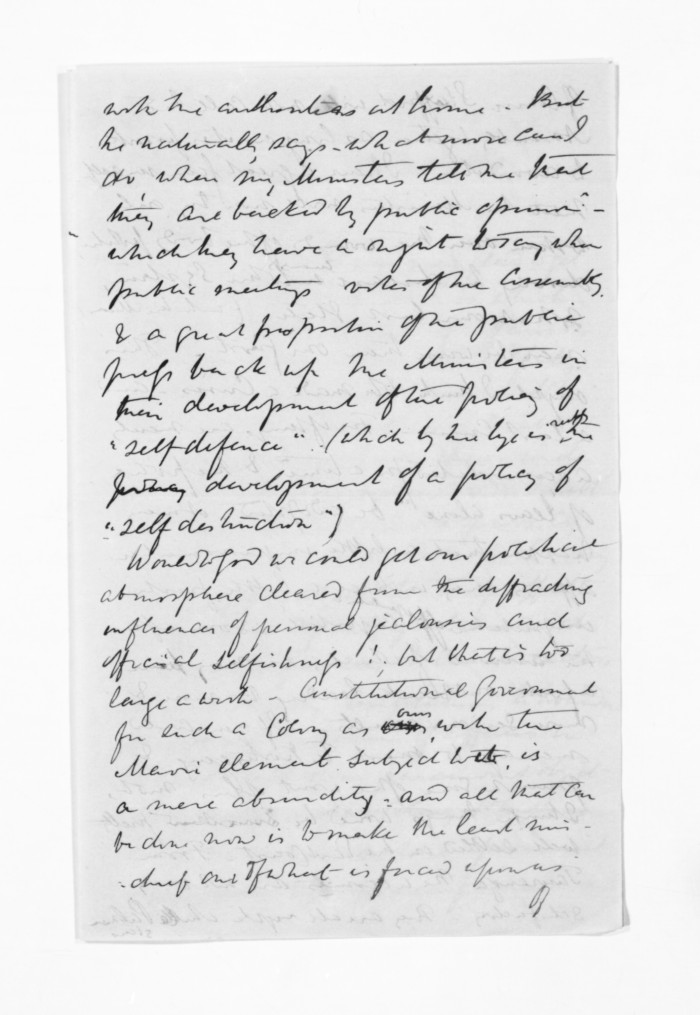 with the authorities at home - But
he naturally says - what more can I
do when my Ministers tell me that
they are backed by public opinion -
which they have a right to say when
public meetings votes of the Assembly
& a great proportion of the public
press back up the Ministers in
their development of the policy of
"self defence" (which by the bye is really the
policy development of a policy of
"self destruction")
Would to God we could get our political
atmosphere cleared from the diffracting
influences of personal jealousies and
official selfishness! but that is too
large a work - Constitutional Government
for such a Colony as ours, with the
Maori element subject to it, is
a mere absurdity - and all that can
be done now is to make the least mis-
-chief out of what is forced upon us